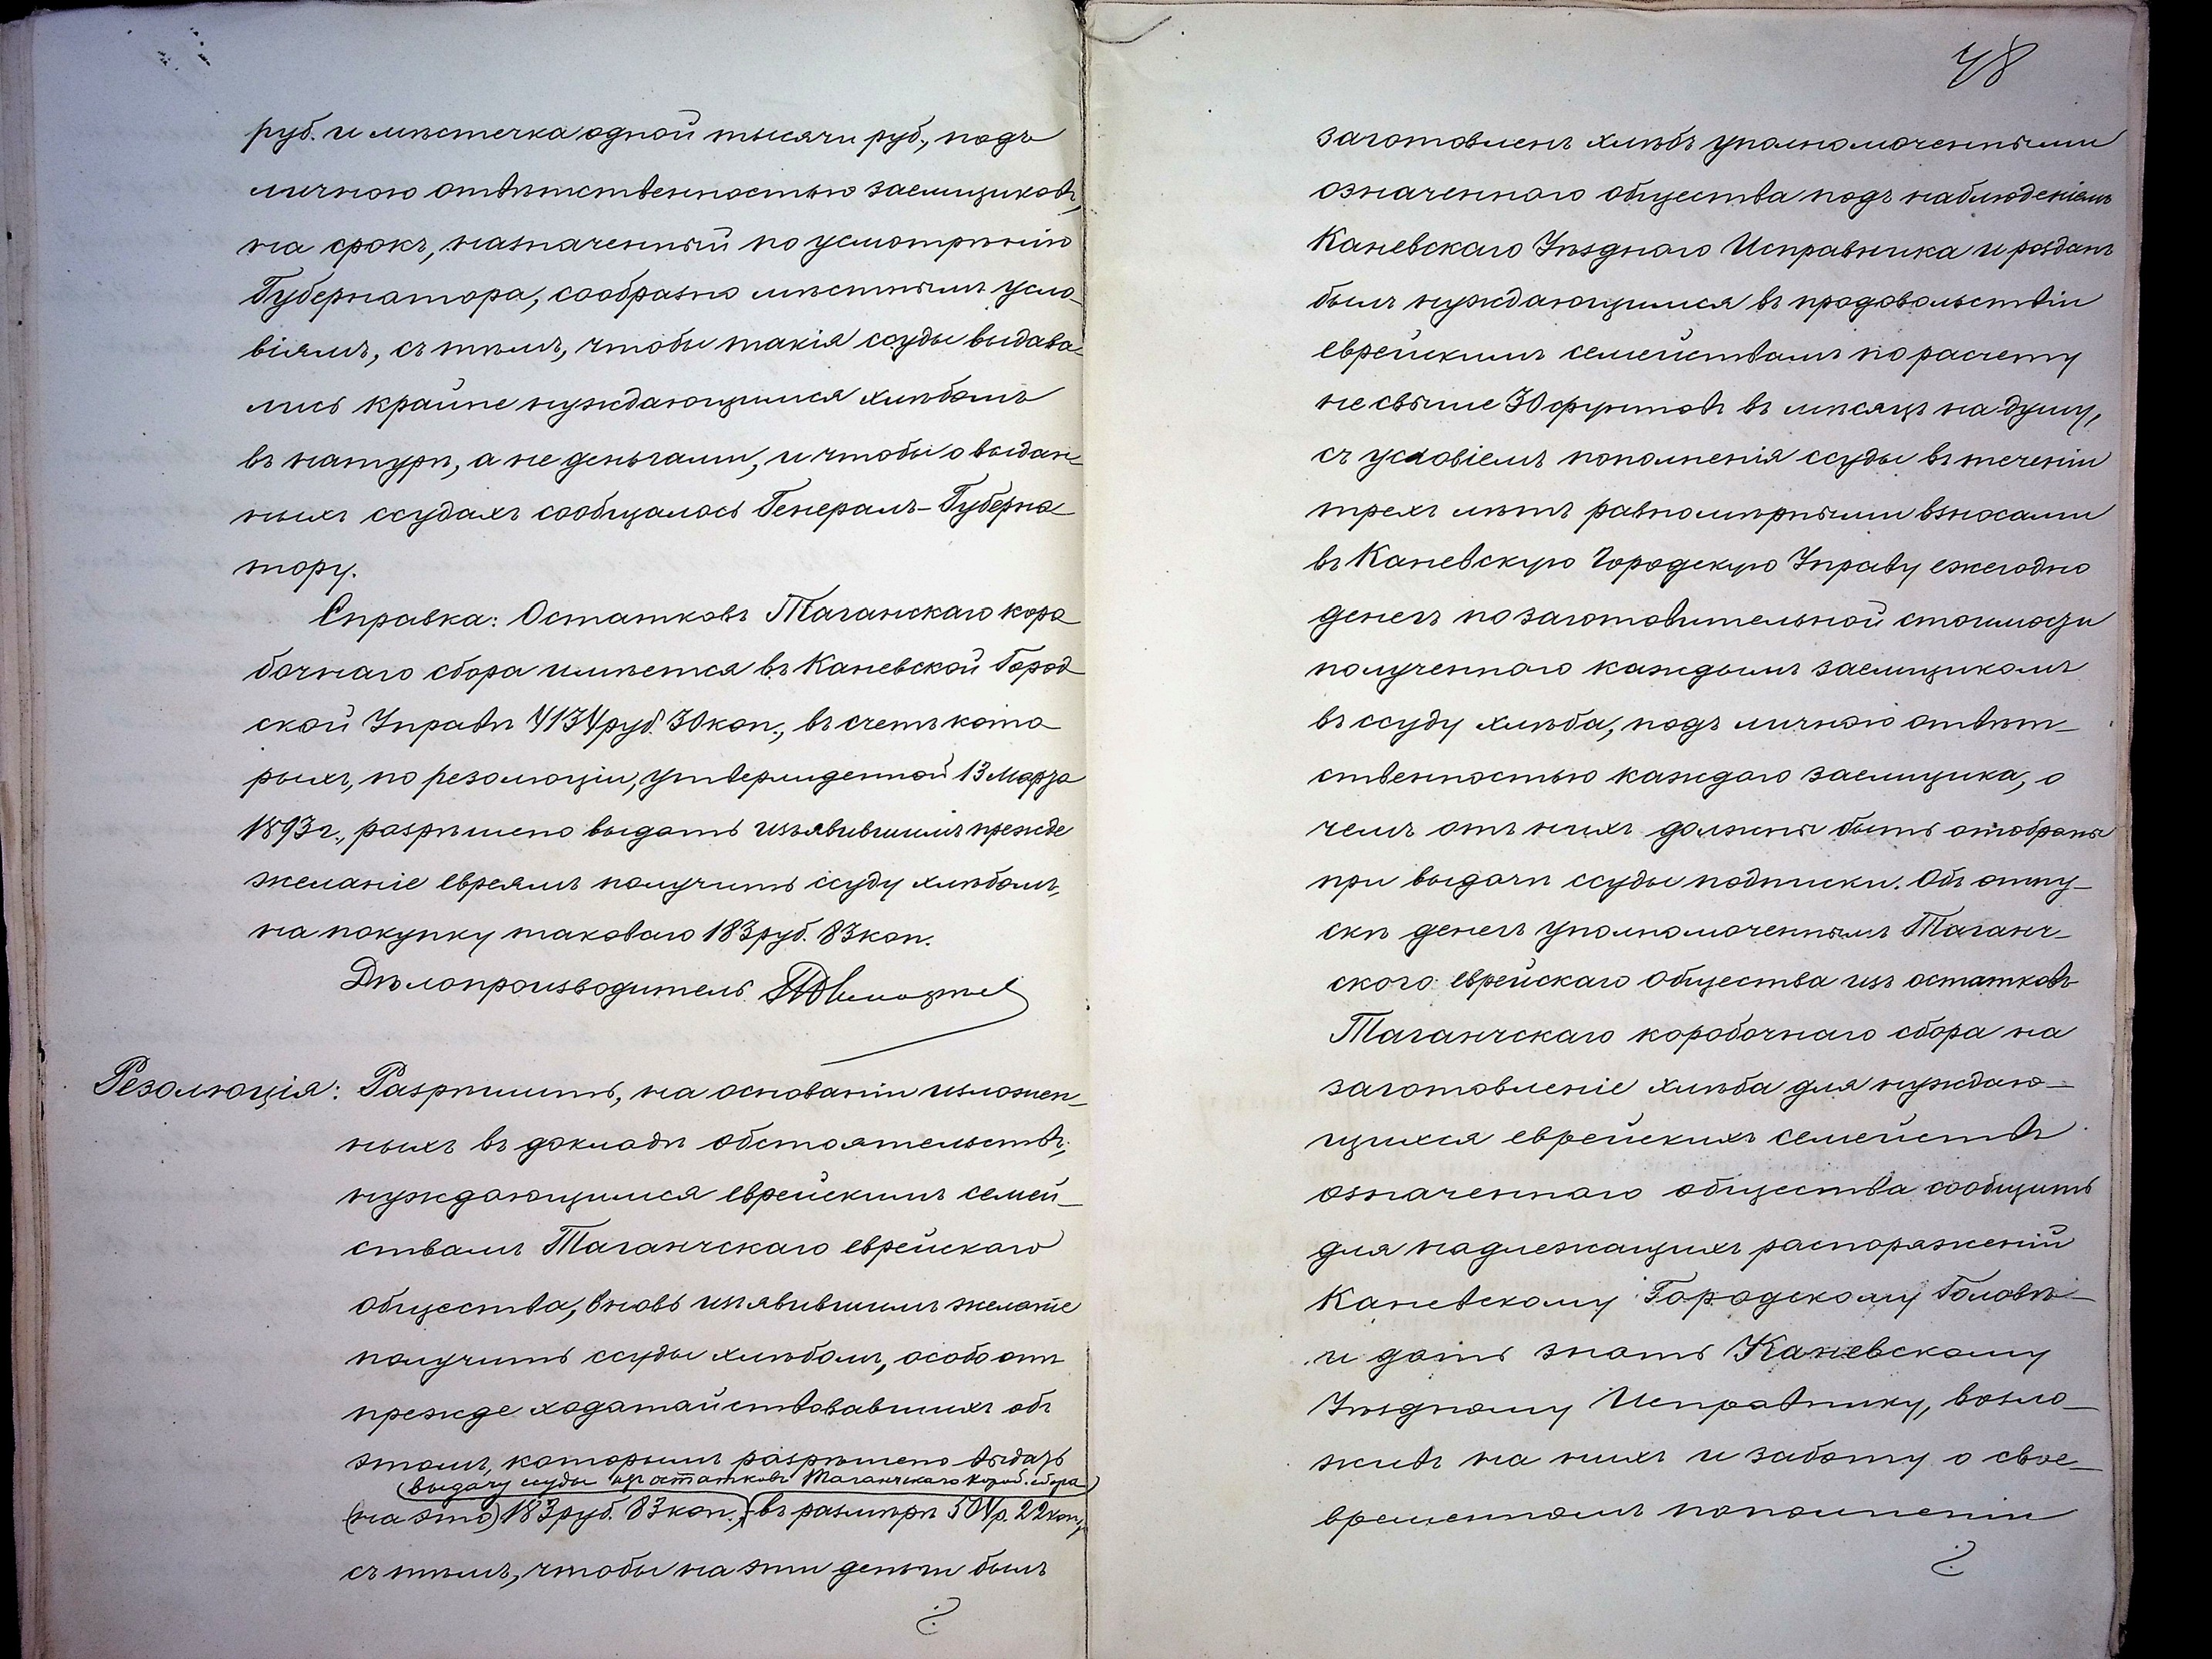 руб. и мѣстечка одной тысячи руб., подъ
личною отвѣтственностью заемщиковъ,
на срокъ, назначенный по усмотрѣнію
Губернатора, сообразно мѣстнымъ усло-
віямъ, съ тѣмъ, чтобы такія ссуды выдава-
лись крайне нуждающимся хлѣбомъ
въ натурѣ, а не деньгами, и чтобы о выдан-
ныхъ ссудахъ сообщалось Генералъ-Губерна-
тору.
Справка: Остатковъ Таганскаго коро-
бочнаго сбора имѣется въ Каневской Город-
ской Управѣ 4134 руб. 30 коп., въ счетъ кото-
рыхъ, по резолюціи, утвержденной 13 Марта
1893 г., разрѣшено выдать изъявившимъ прежде
желаніе евреямъ получить ссуду хлѣбомъ,
на покупку таковаго 183 руб. 83 коп.
Дѣлопроизводитель
Резолюція: Разрѣшить, на основаніи изложен-
ныхъ въ докладѣ обстоятельствъ,
нуждающимся еврейскимъ семей-
ствамъ Таганчскаго еврейскаго
общества, вновь изъявившимъ желаніе
получить ссуды хлѣбомъ, особо отъ
прежде ходатайствовавшихъ объ
этомъ, которымъ разрѣшено выдать
(выдачу ссуды изъ остатковъ Таганчскаго короб. сбора)
(на это) 183 руб. 83 коп., въ размѣрѣ 504 р. 22 коп.,
съ тѣмъ, чтобы на эти деньги былъ
48
заготовленъ хлѣбъ уполномоченными
означенного общества подъ наблюденіемъ
Каневскаго Уѣзднаго Исправника и розданъ
былъ нуждающимся въ продовольствіи
еврейскимъ семействамъ по расчету
не свыше 30 фунтовъ въ мѣсяцъ на душу,
съ условіемъ пополненія ссуды въ теченіи
трехъ лѣтъ равномѣрными взносами
въ Каневскую Городскую Управу ежегодно
денегъ по заготовительной стоимости
полученного каждымъ заемщикомъ
въ ссуду хлѣба, подъ личною отвѣт-
ственностью каждаго заемщика, о
чемъ отъ нихъ должны быть отобраны
при выдачѣ ссуды подписки. Объ отпу-
скѣ денегъ уполномоченнымъ Таганч-
ского еврейскаго Общества изъ остатковъ
Таганчскаго коробочнаго сбора на
заготовленіе хлѣба для нуждаю-
щихся еврейскихъ семействъ
означеннаго общества сообщить
для надлежащихъ распоряженій
Каневскому Городскому Головѣ
и дать знать Каневскому
Уѣздному Исправнику, возло-
живъ на нихъ и заботу о свое-
временномъ пополненіи